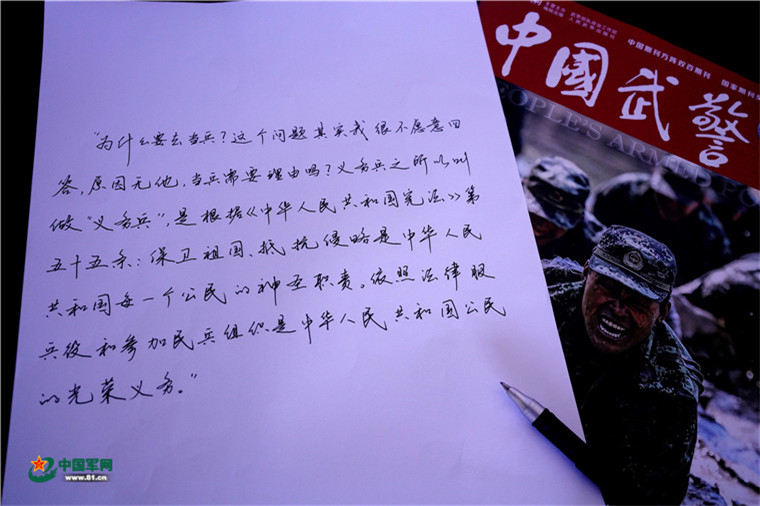 “为什么要去当兵？这个问题其实我很不愿意回
答，原因无他，当兵需要理由吗？义务兵之所以叫
做“义务兵”，是根据《中华人民共和国宪法》第
五十五条：保卫祖国、抵抗侵略是中华人民
共和国每一个公民的神圣职责。依照法律服
兵役和参加民兵组织是中华人民共和国公民
的光荣义务。”
中国武警
中国期刊方阵双百期刊 国家期刊
PEOPLE'S ARMED PO
中国军网
www.81.cn